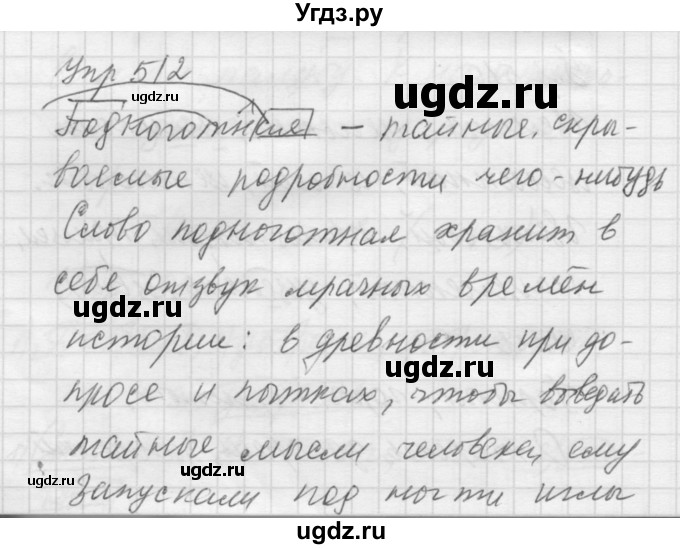 Угдз.ру
Упр 512
ugdz.ru
ugdz.ru
Подноготная – тайные, скры-
ваемые подробности чего-нибудь
Слово подноготная хранит в
себе отзвук мрачных времён
ugdz.ru
ugdz.ru
истории: в древности при до-
ugdz.ru
просе и пытках, чтобы выведать
тайные мысли человека, ему
ugdz.ru
ugdz.ru
ugdz.ru
Запускали под ногти иглы
ugdz.ru